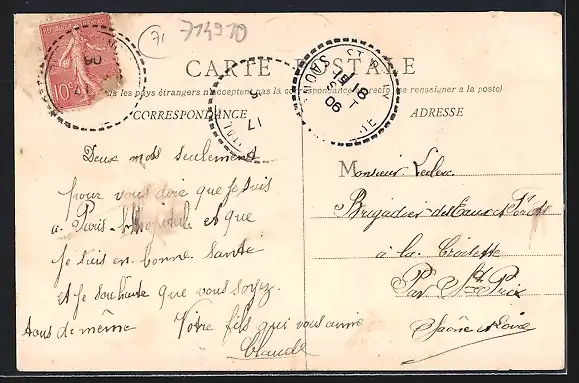 71 714910
REPUBLIQUE FRANÇAISE
10c
CARTE POSTALE
les pays étrangers n'acceptent pas la correspondance au recto (se renseigner à la poste)
CORRESPONDANCE
ADRESSE
Deux mots seulement
pour vous dire que je suis
a Paris l'hopital et que
Je suis en bonne santé
et Je souhaite que vous soyez
tous de même Votre fils qui vous aime
Claude
Monsieur Leclerc
Brigadier des Eaux et Forets
à la Croisette
Par St Prix
Saône et Loire
17
06